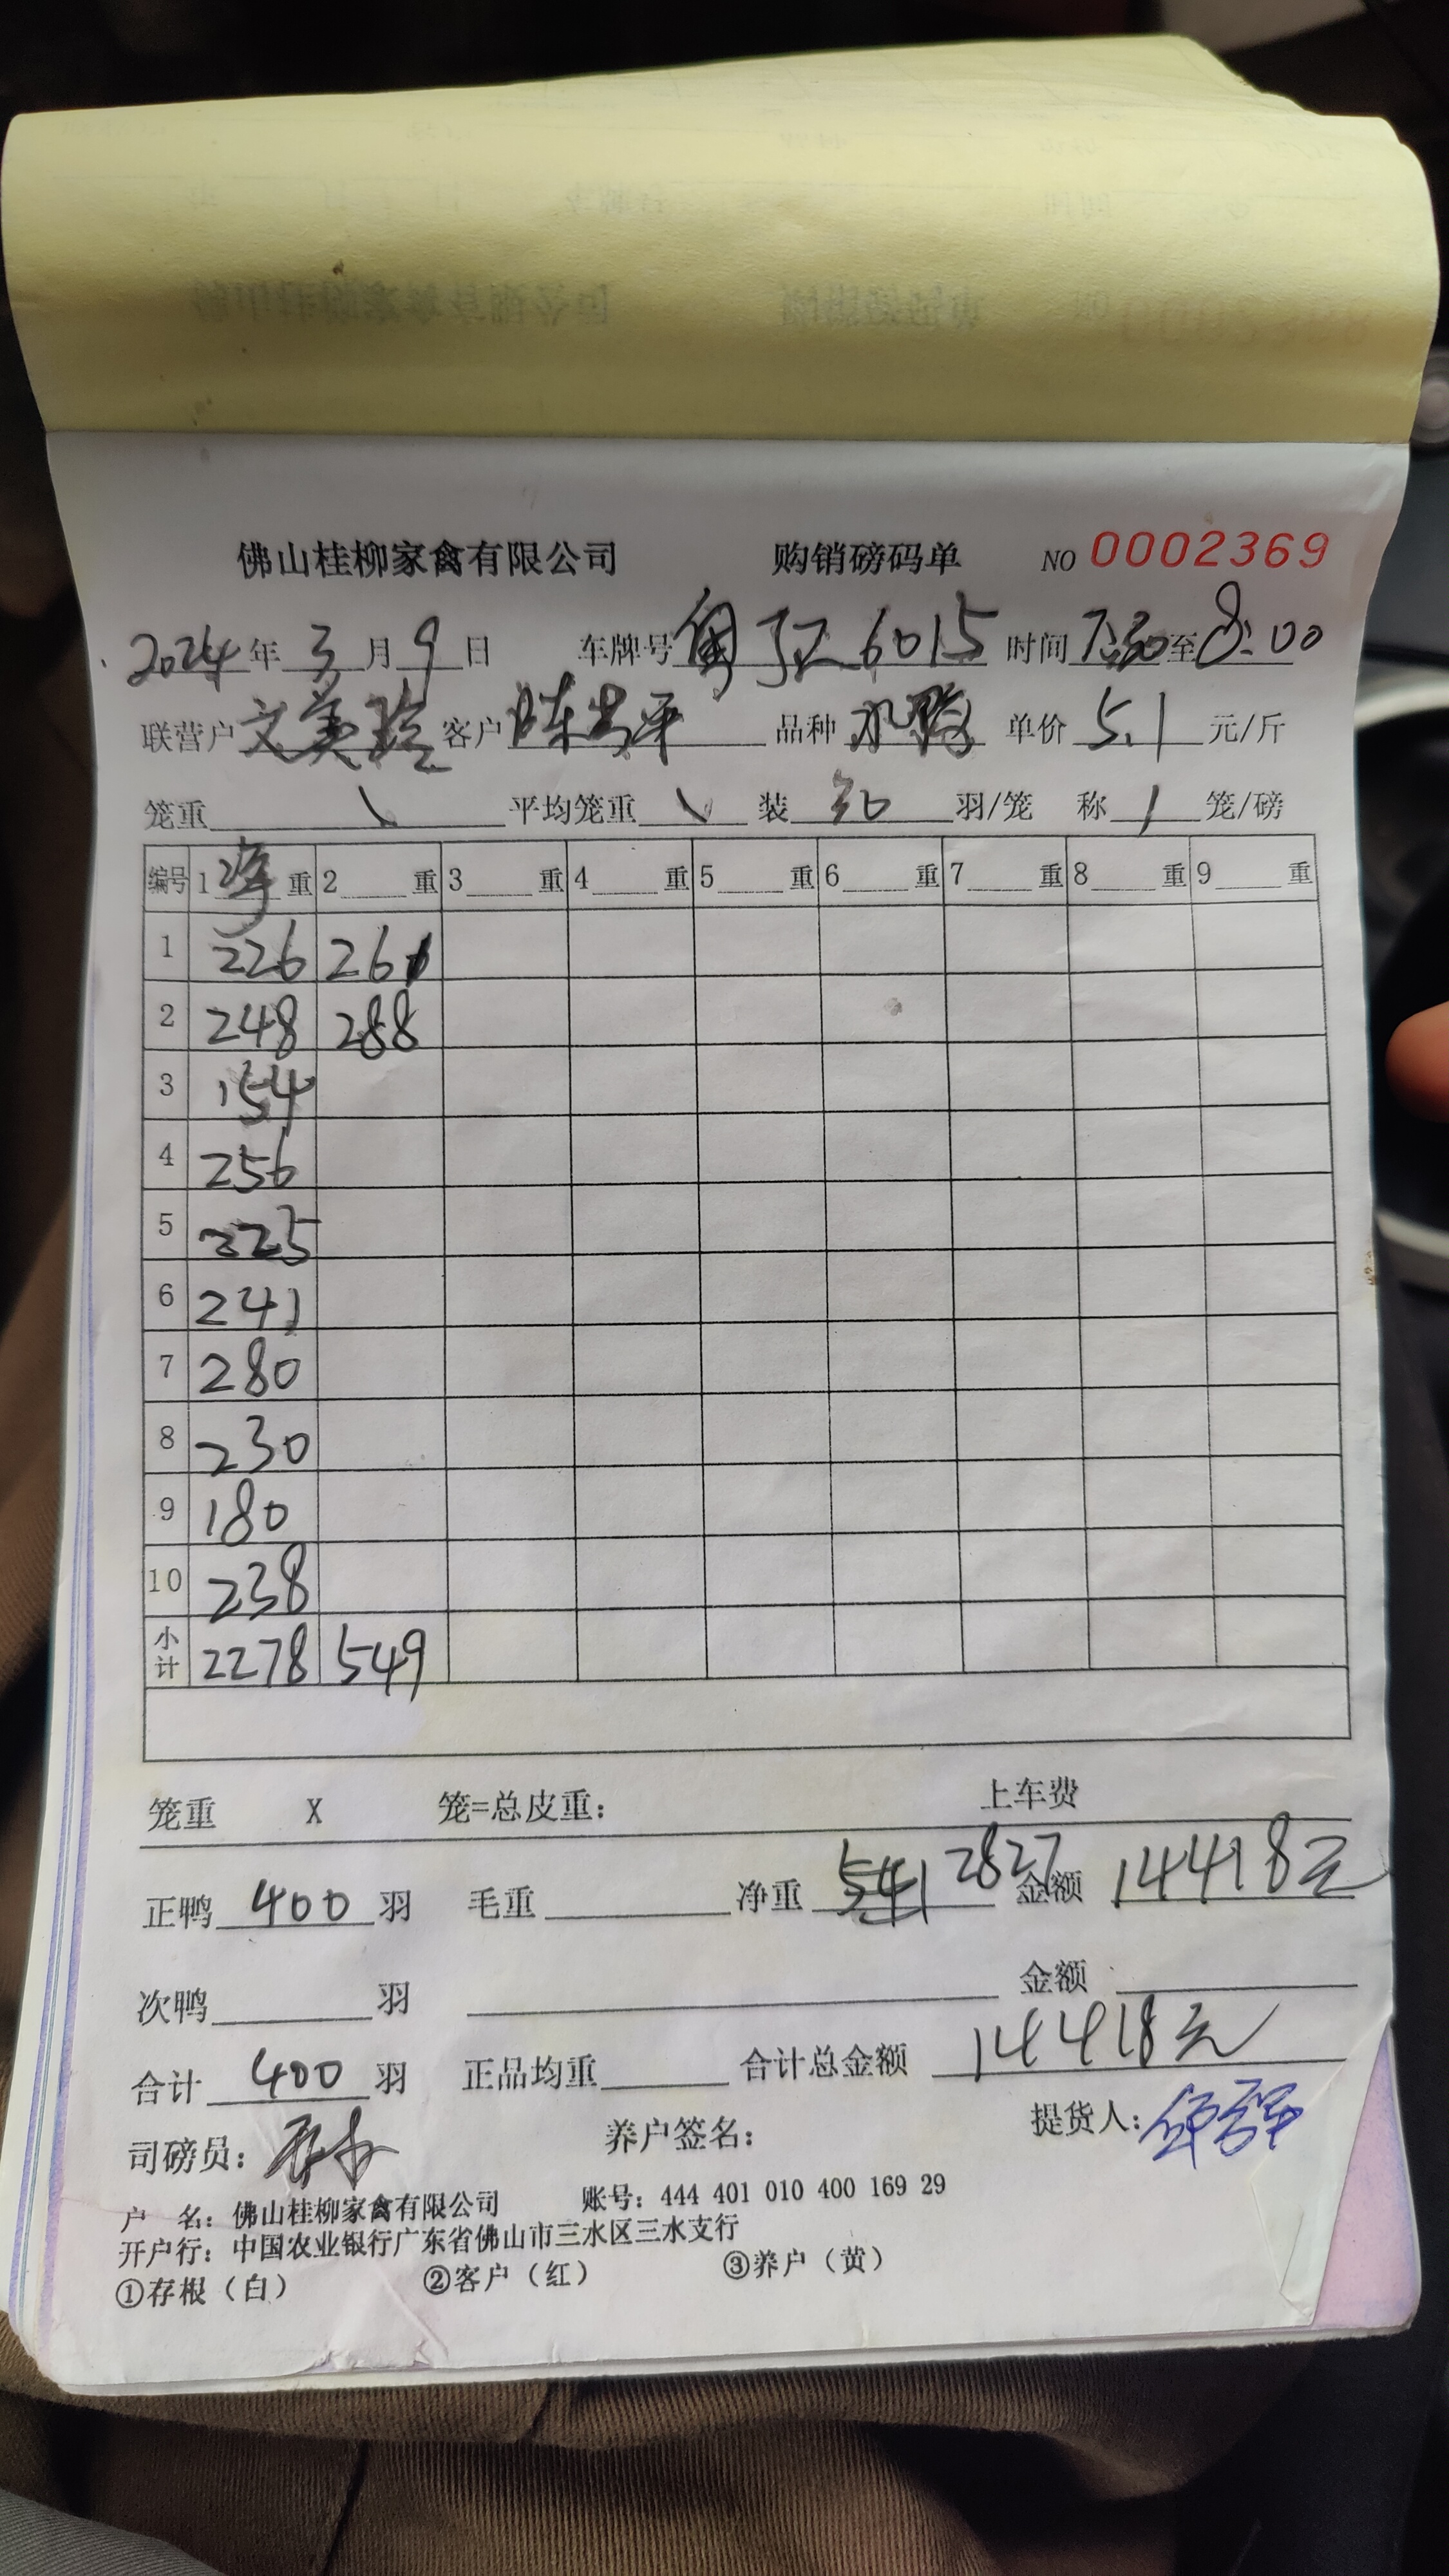 佛山桂柳家禽有限公司 购销磅码单 NO 0002369
2024 年 3 月 9 日 车牌号 6015 时间 7:30 至 8:00
联营户 文美玲 客户 陈 平 品种 水鸭 单价 5.1 元/斤
笼重 \ 平均笼重 \ 装 羽/笼 称 1 笼/磅
编号 1 净 重 2 重 3 重 4 重 5 重 6 重 7 重 8 重 9 重
1 226 261
2 248 288
3 154
4 256
5 225
6 241
7 280
8 230
9 180
10 238
小计 2278 549
笼重 X 笼=总皮重: 上车费
正鸭 400 羽 毛重 净重 2827 金额 14418元
次鸭 羽 金额
合计 400 羽 正品均重 合计总金额 14418元
司磅员: 养户签名: 提货人:
户 名: 佛山桂柳家禽有限公司 账号: 444 401 010 400 169 29
开户行: 中国农业银行广东省佛山市三水区三水支行
①存根(白) ②客户(红) ③养户(黄)